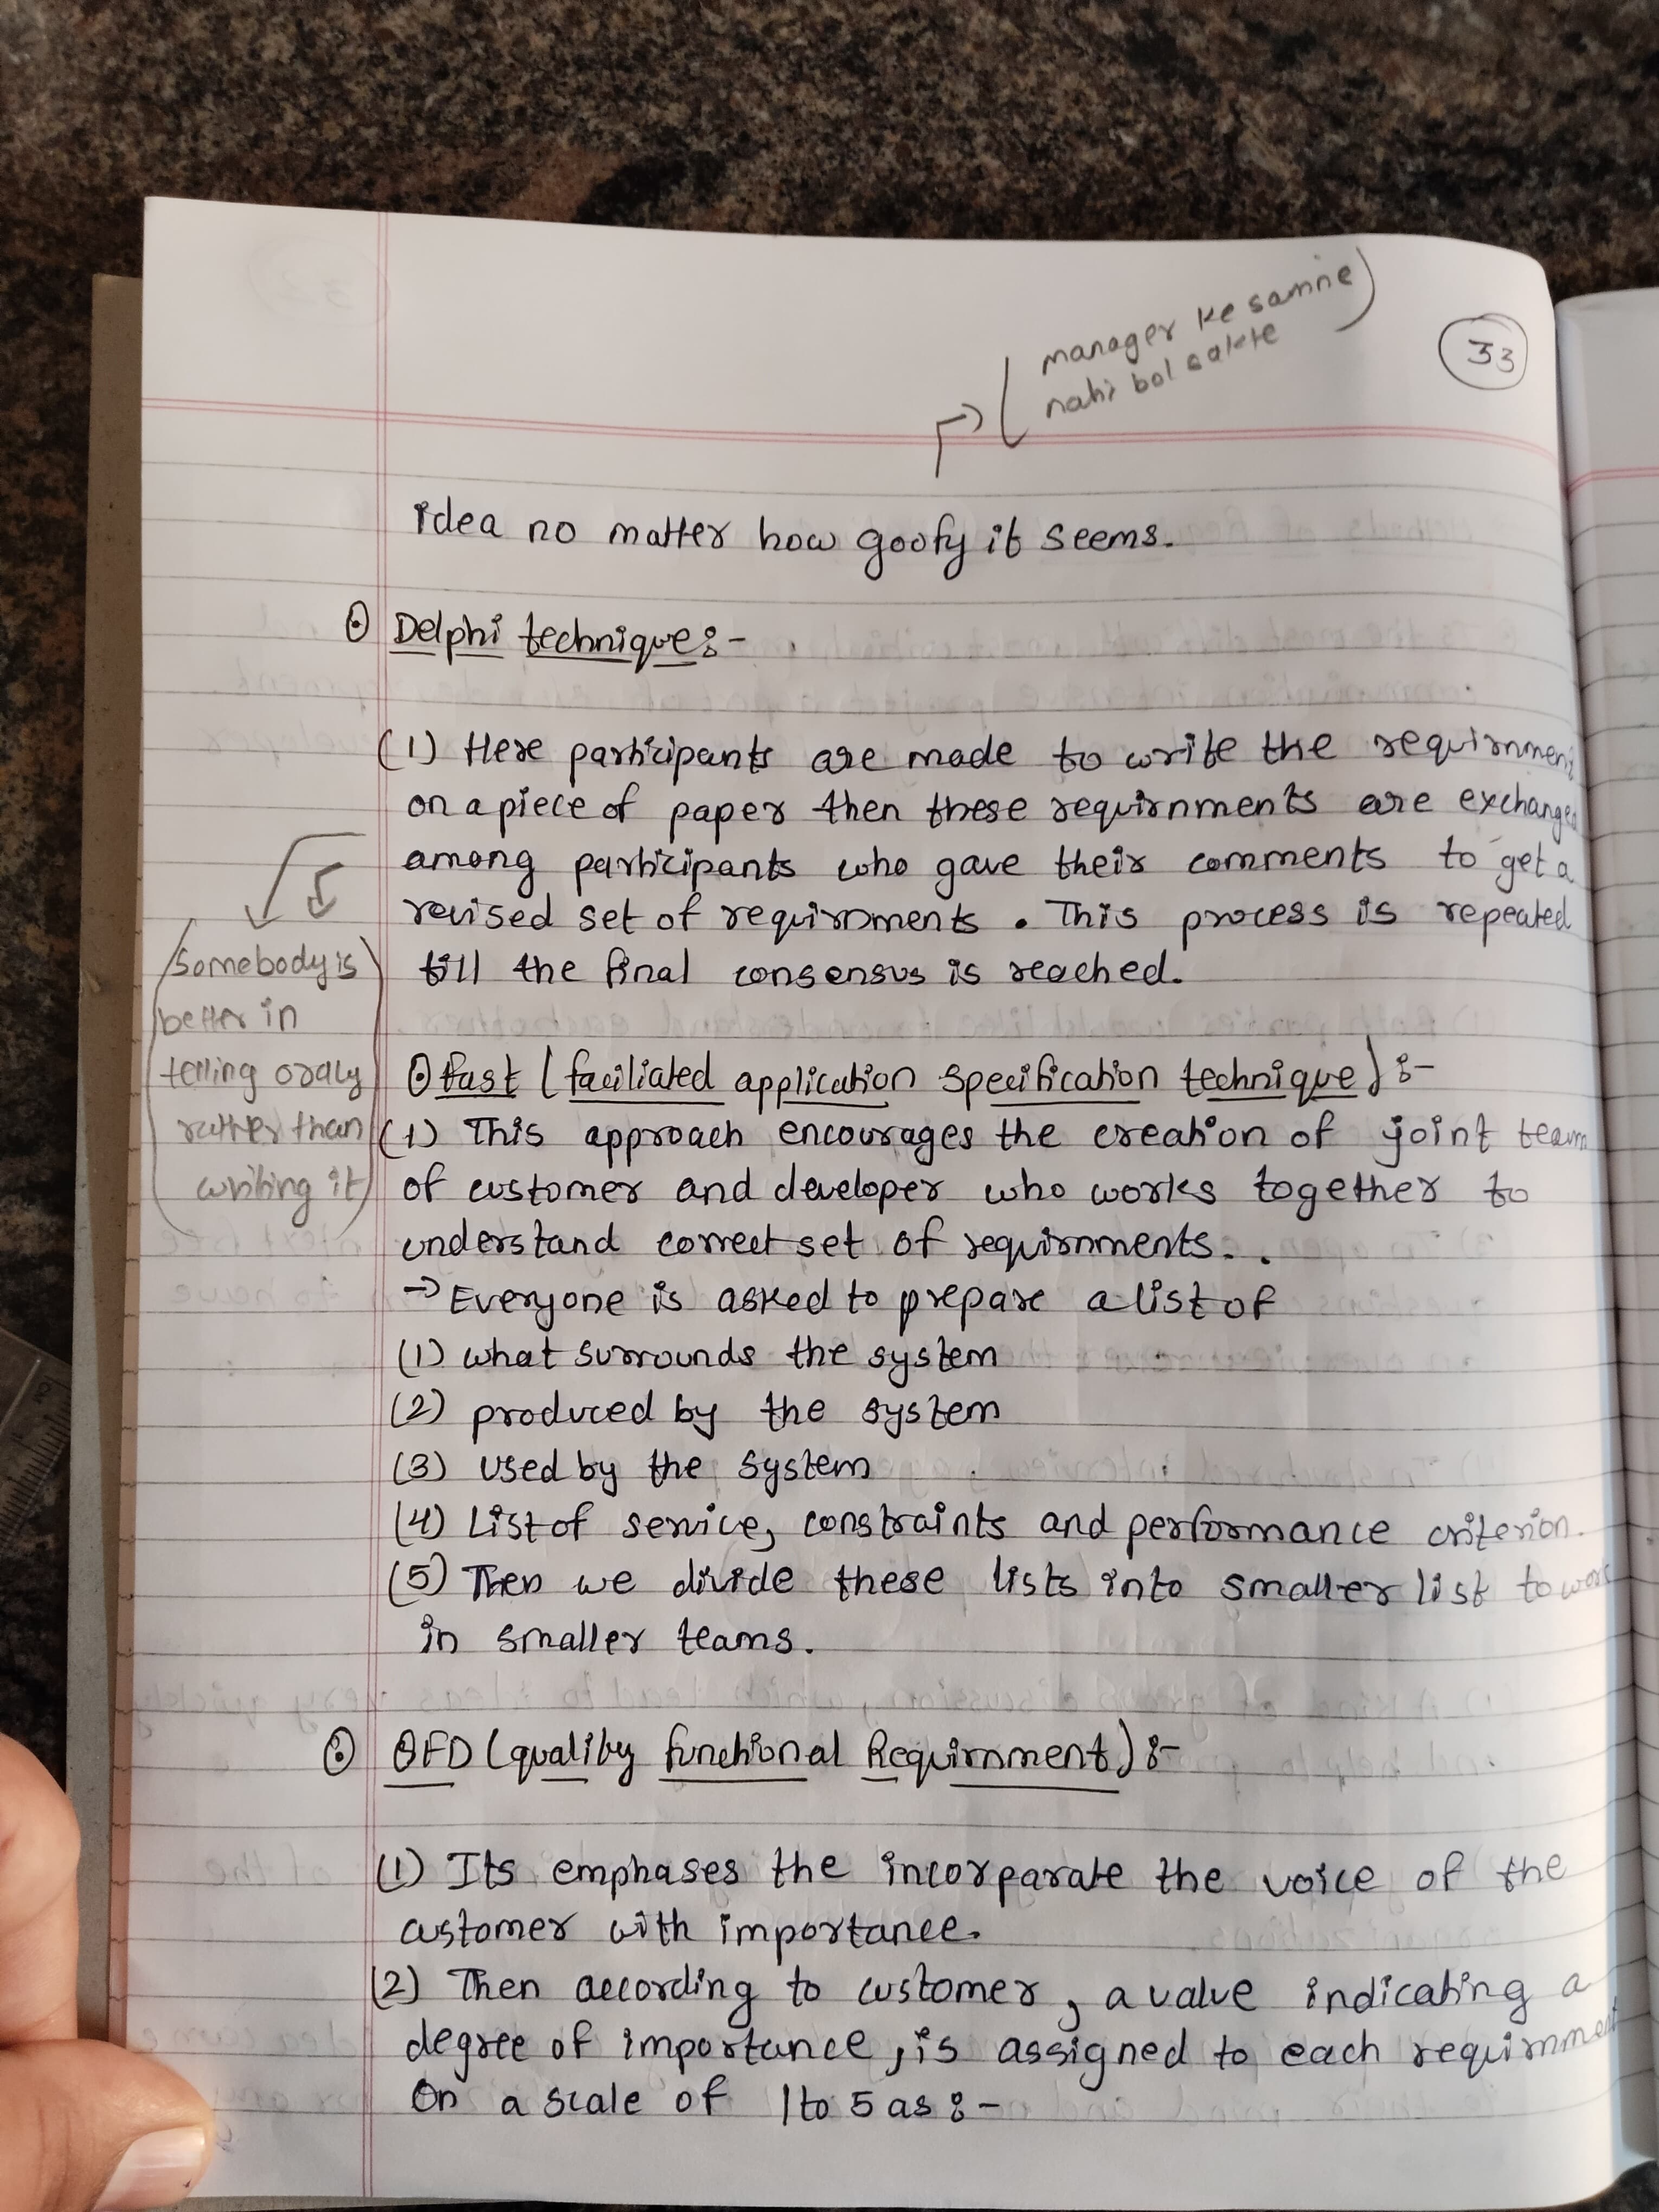 manager ke samne
nahi bol sakte
33
idea no matter how goofy it seems.
Delphi technique :-
(1) Here participants are made to write the requirnment
on a piece of paper then these requirnments are exchanged
among participants who gave their comments to get a
revised set of requirnments. This process is repeated
till the final consensus is reached.
Somebody is
better in
telling oraly
rather than
writing it
Fast (faciliated application specification technique) :-
(1) This approach encourages the creation of joint team
of customer and developer who works together to
understand correct set of requirnments.
→ Everyone is asked to prepare a list of
(1) what surrounds the system
(2) produced by the system
(3) used by the system
(4) List of service, constraints and performance criterion.
(5) Then we divide these lists into smaller list to work
in smaller teams.
QFD (quality functional Requirnment) :-
(1) Its emphases the incorparate the voice of the
customer with importance.
(2) Then according to customer, a value indicating a
degree of importance, is assigned to each requirnment
On a scale of 1 to 5 as :-